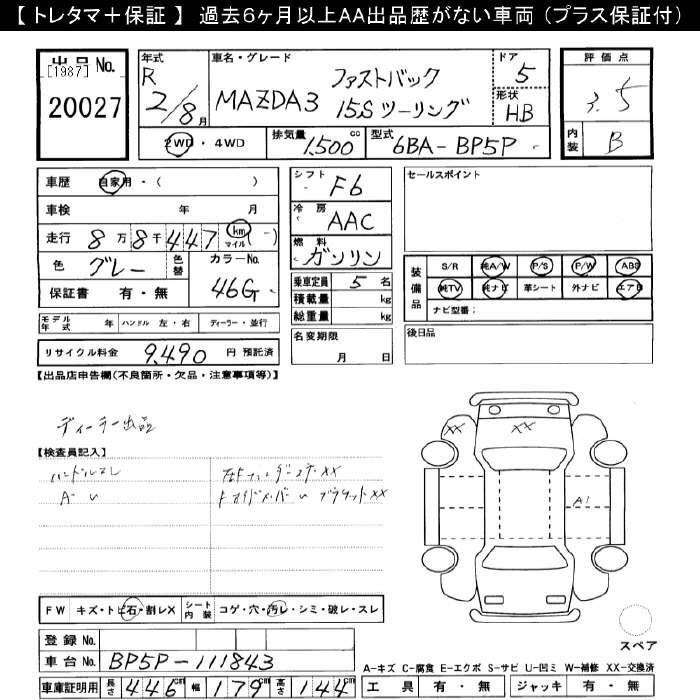 【 トレタマ＋保証 】 過去6ヶ月以上AA出品歴がない車両（プラス保証付）
出品No.
[1987]
20027
年式
R
2/8月
車名・グレード
MAZDA3
ファストバック
15S ツーリング
ドア
5
形状
HB
評価点
3.5
内装
B
2WD ・ 4WD
排気量
1,500 cc
型式
6BA-BP5P
車歴 自家用・（ ）
車検 年 月
走行 8万8千447 km マイル (-)
色 グレー
色替
カラーNo.
46G
保証書 有・無
シフト
F6
冷房
AAC
燃料
ガソリン
乗車定員 5 名
積載量 kg
総重量 kg
セールスポイント
装備品
S/R 純A/W P/S P/W ABS
純TV 純ナビ 革シート 外ナビ エアB
ナビ型番：
モデル年式 年 ハンドル 左・右 ディーラー・並行
リサイクル料金 9,490 円 預託済
名変期限
月 日
後日品
【出品店申告欄（不良箇所・欠品・注意事項等）】
ディーラー出品
【検査員記入】
XX
XX
A1
FW キズ・トビ石・割レX
シート内装 コゲ・穴・汚レ・シミ・破レ・スレ
登録 No.
車台 No. BP5P-111843
車庫証明用 長さ 446 cm 幅 179 cm 高さ 144 cm
スペア
A-キズ C-腐食 E-エクボ S-サビ U-凹ミ W-補修 XX-交換済
工具 有・無 ジャッキ 有・無